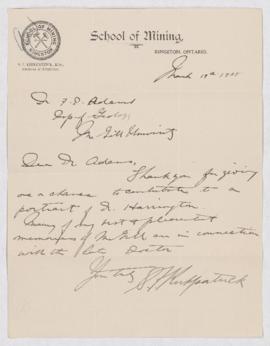 SCHOOL OF MINING
KINGSTON
School of Mining,
KINGSTON, ONTARIO.
March 19th 1908
Dr F. D. Adams
Dept of Geology
McGill University
Dear Dr Adams,
Thank you for giving
us a chance to contribute to a
portrait of Dr. Harrington.
Many of my best & pleasantest
memories of McGill are in connection
with the late Doctor
Yours truly
S F Kirkpatrick